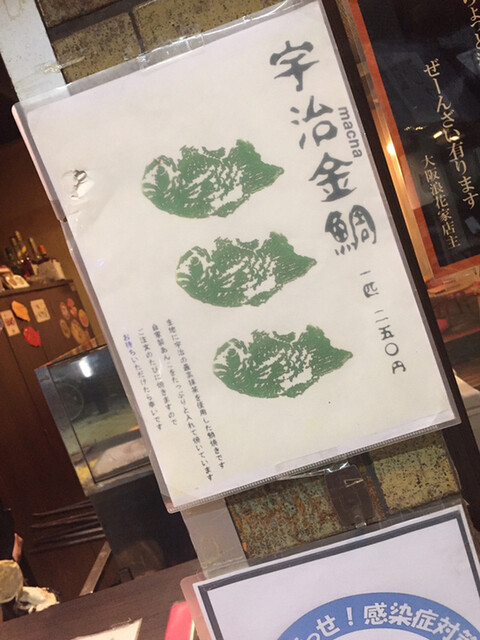 宇治金鯛
macha
一匹 二五〇円
生地に宇治の高級抹茶を使用した鯛焼きです
自家製あんこをたっぷりと入れて焼いています
ご注文のたびに焼きますので
お待ちいただけたら幸いです
ぜーんざい有ります
大阪浪花家店主
せ！感染症対策